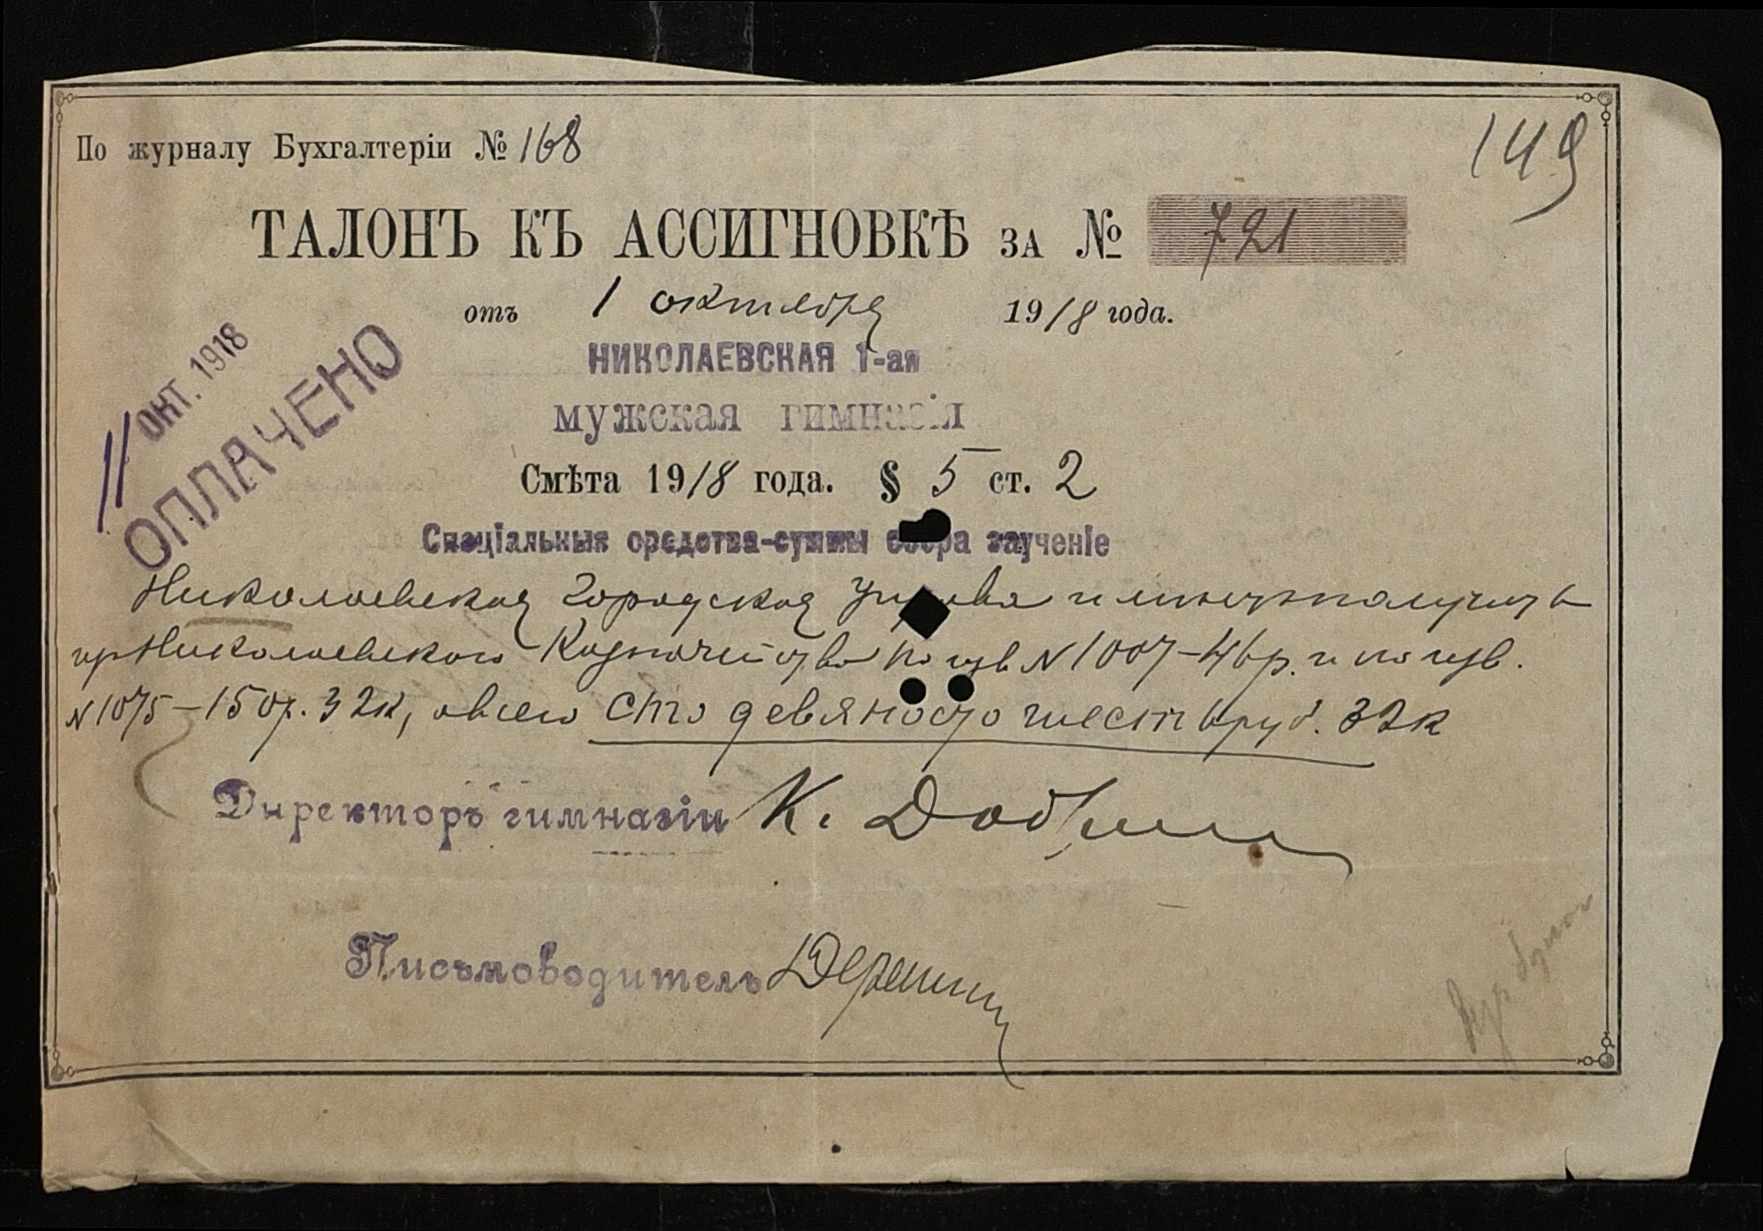 По журналу Бухгалтеріи № 168
149
ТАЛОНЪ КЪ АССИГНОВКѢ ЗА № 721
отъ 1 октября 1918 года.
НИКОЛАЕВСКАЯ 1-ая
мужская гимназія
11 ОКТ. 1918
ОПЛАЧЕНО
Смѣта 1918 года. § 5 ст. 2
Спеціальныя средства-суммы сбора за ученіе
Николаевская Городская Управа имѣетъ получить
изъ Николаевского Казначейства по 1007-46р. и по
№ 1075-150р. 32к, всего сто девяносто шесть руб. 32к
Директоръ гимназіи К.
Письмоводитель